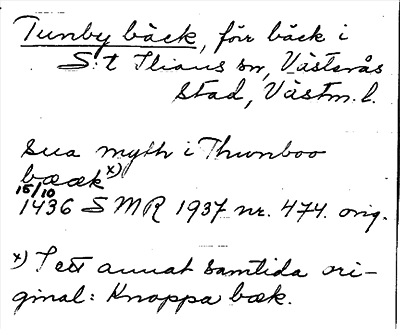 Tunby bäck, förr bäck i
S:t Ilians sn, Västerås
stad, Västm. l.
sua myth i Thunboo
bææk x)
15/10
1436 SMR 1937 nr. 474. orig.
x) I ett annat samtida ori-
ginal: Knoppa bæk.